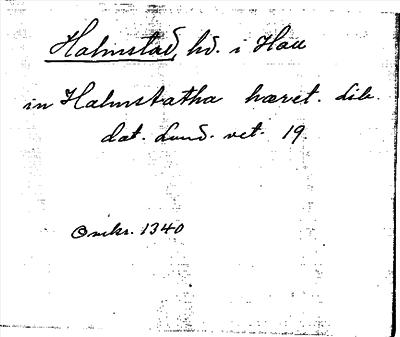 Halmstad, hd. i Hall
in Halmstatha hæret. Lib.
dat. Lund. vet. 19.
Omkr. 1340